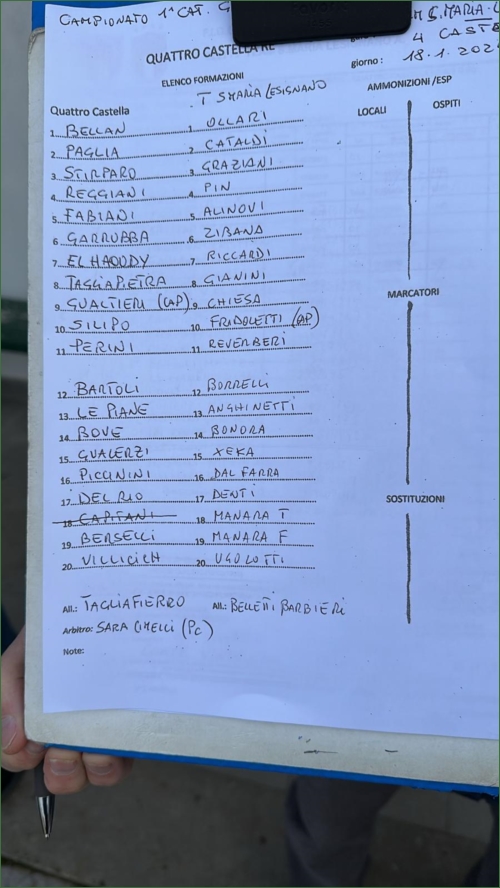 CAMPIONATO 1ª CAT. G
M S.MARIA
4 CASTE
QUATTRO CASTELLA RE
giorno : 18.1.202
ELENCO FORMAZIONI
AMMONIZIONI /ESP
Quattro Castella T SMARIA LESIGNANO
LOCALI OSPITI
1 BELLAN 1 OLLARI
2 PAGLIA 2 CATALDI
3 STIRPARO 3 GRAZIANI
4 REGGIANI 4 PIN
5 FABIANI 5 ALINOVI
6 GARRUBBA 6 ZIBANA
7 EL HAOUDY 7 RICCARDI
8 TAGLIAPIETRA 8 GIANINI
9 GUALTIERI (CAP) 9 CHIESA
MARCATORI
10 SILIPO 10 FRIDOLETTI (CAP)
11 PERINI 11 REVERBERI
12 BARTOLI 12 BORRELLI
13 LE PIANE 13 ANGHINETTI
14 BOVE 14 BONORA
15 GUALERZI 15 XEKA
16 PICCININI 16 DAL FARRA
17 DEL RIO 17 DENTI
SOSTITUZIONI
18 CAPITANI 18 MANARA T
19 BERSELLI 19 MANARA F
20 VILLICICH 20 UGOLOTTI
All.: TAGLIAFIERRO All.: BELLETTI BARBIERI
Arbitro: SARA CIMELLI (PC)
Note: